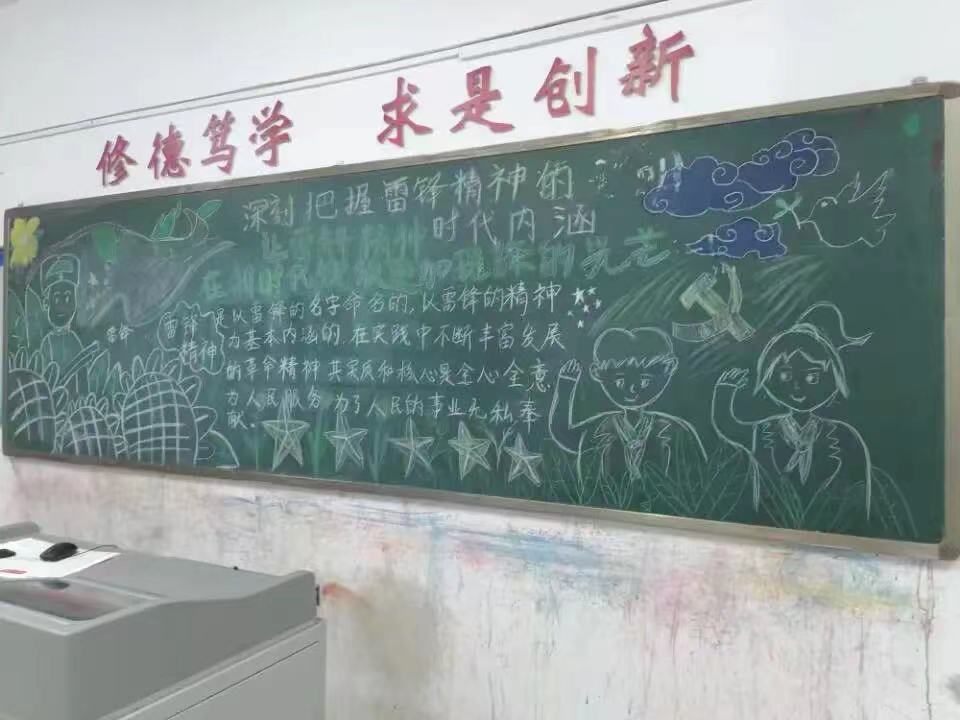 修德笃学 求是创新
深刻把握雷锋精神的
时代内涵
雷锋
雷锋
精神
是以雷锋的名字命名的,以雷锋的精神
为基本内涵的,在实践中不断丰富发展
的革命精神其实质和核心是全心全意
为人民服务为了人民的事业无私奉
献。